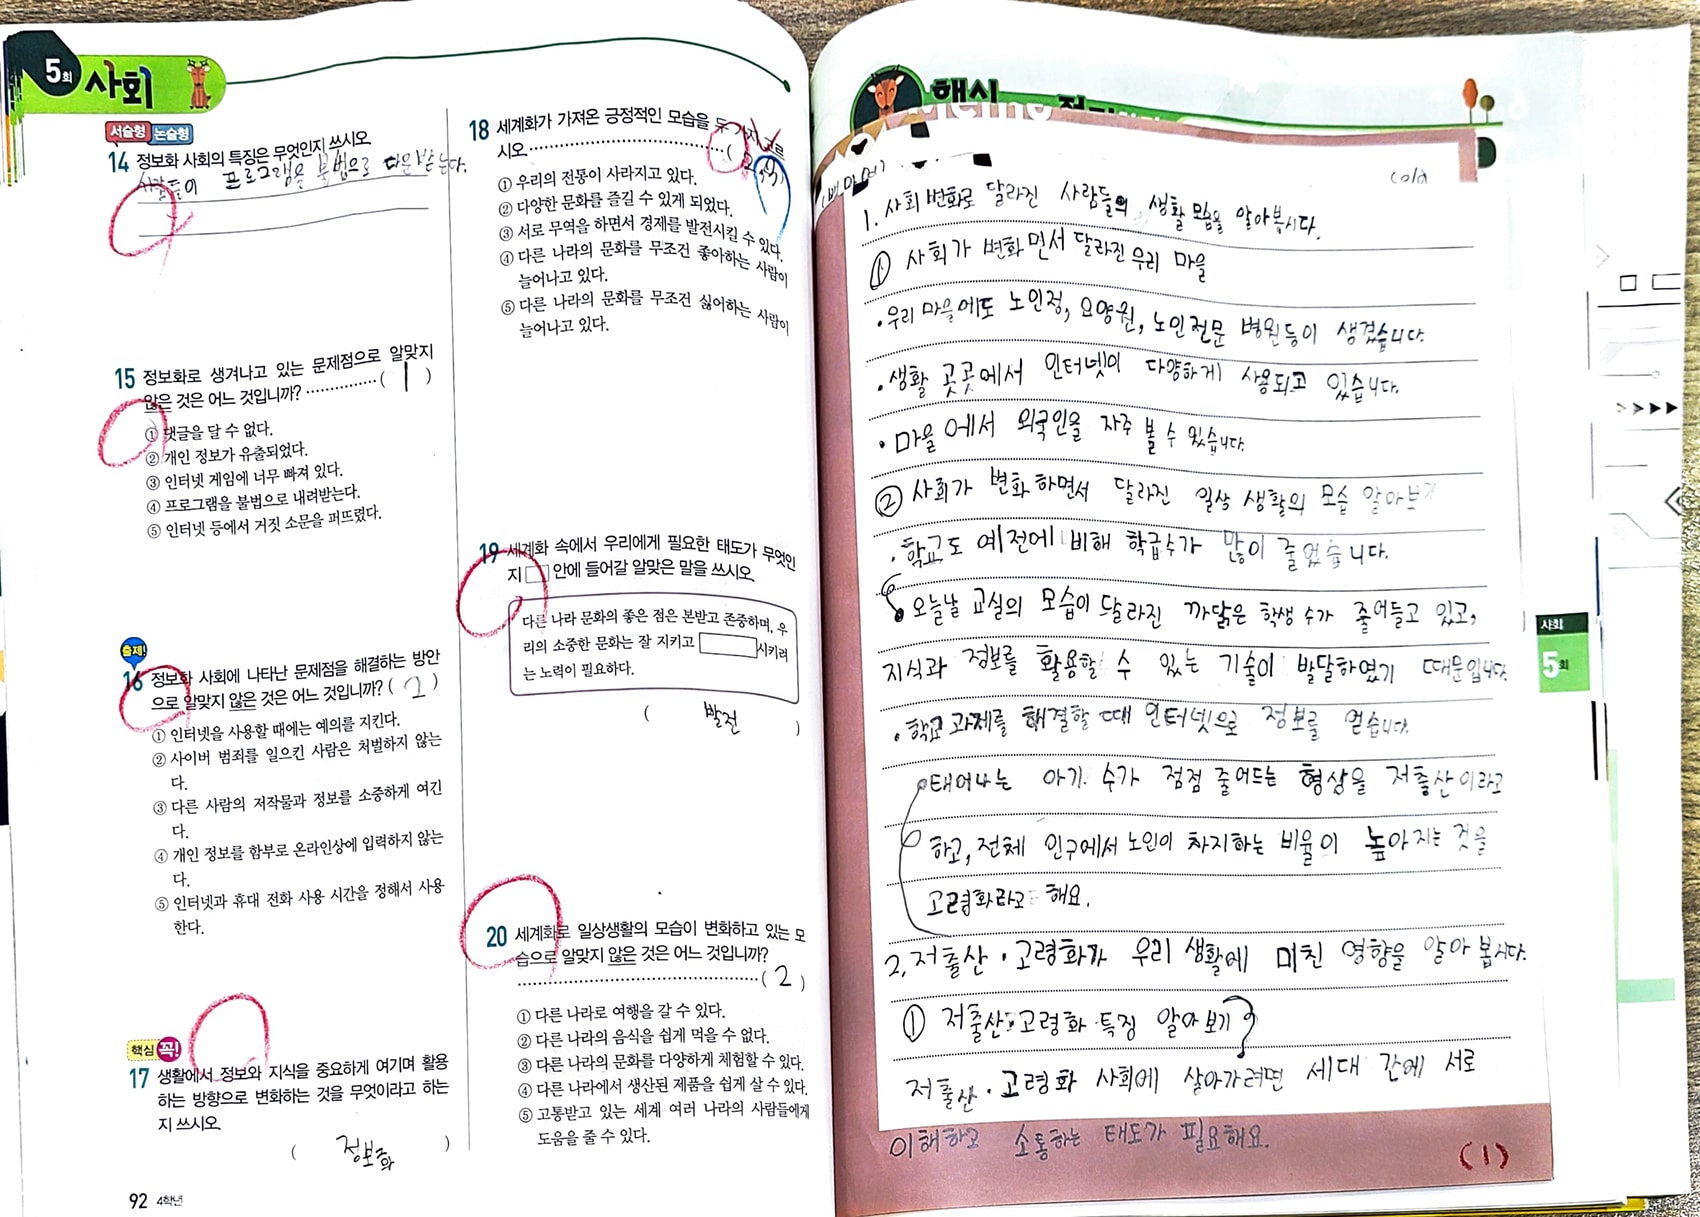 5회 사회
서술형 논술형
14 정보화 사회의 특징은 무엇인지 쓰시오
사람들이 프로그램을 불법으로 다운받는다.
15 정보화로 생겨나고 있는 문제점으로 알맞지
않은 것은 어느 것입니까? ( 1 )
① 댓글을 달 수 없다.
② 개인 정보가 유출되었다.
③ 인터넷 게임에 너무 빠져 있다.
④ 프로그램을 불법으로 내려받는다.
⑤ 인터넷 등에서 거짓 소문을 퍼뜨렸다.
출제!
16 정보화 사회에 나타난 문제점을 해결하는 방안
으로 알맞지 않은 것은 어느 것입니까? ( 2 )
① 인터넷을 사용할 때에는 예의를 지킨다.
② 사이버 범죄를 일으킨 사람은 처벌하지 않는
다.
③ 다른 사람의 저작물과 정보를 소중하게 여긴
다.
④ 개인 정보를 함부로 온라인상에 입력하지 않는
다.
⑤ 인터넷과 휴대 전화 사용 시간을 정해서 사용
한다.
핵심 꼭!
17 생활에서 정보와 지식을 중요하게 여기며 활용
하는 방향으로 변화하는 것을 무엇이라고 하는
지 쓰시오
( 정보화 )
92 4학년
18 세계화가 가져온 긍정적인 모습을 두 가지 고르
시오 (
① 우리의 전통이 사라지고 있다.
② 다양한 문화를 즐길 수 있게 되었다.
③ 서로 무역을 하면서 경제를 발전시킬 수 있다.
④ 다른 나라의 문화를 무조건 좋아하는 사람이
늘어나고 있다.
⑤ 다른 나라의 문화를 무조건 싫어하는 사람이
늘어나고 있다.
19 세계화 속에서 우리에게 필요한 태도가 무엇인
지 안에 들어갈 알맞은 말을 쓰시오
다른 나라 문화의 좋은 점은 본받고 존중하며, 우
리의 소중한 문화는 잘 지키고 시키려
는 노력이 필요하다.
( 발전 )
20 세계화로 일상생활의 모습이 변화하고 있는 모
습으로 알맞지 않은 것은 어느 것입니까?
( 2 )
① 다른 나라로 여행을 갈 수 있다.
② 다른 나라의 음식을 쉽게 먹을 수 없다.
③ 다른 나라의 문화를 다양하게 체험할 수 있다.
④ 다른 나라에서 생산된 제품을 쉽게 살 수 있다.
⑤ 고통받고 있는 세계 여러 나라의 사람들에게
도움을 줄 수 있다.
핵심
1. 사회 변화로 달라진 사람들의 생활 모습을 알아봅시다.
① 사회가 변화면서 달라진 우리 마을
• 우리 마을에도 노인정, 요양원, 노인전문 병원등이 생겼습니다.
• 생활 곳곳에서 인터넷이 다양하게 사용되고 있습니다.
• 마을에서 외국인을 자주 볼 수 있습니다.
② 사회가 변화하면서 달라진 일상 생활의 모습 알아보기
• 학교도 예전에 비해 학급수가 많이 줄었습니다.
오늘날 교실의 모습이 달라진 까닭은 학생 수가 줄어들고 있고,
지식과 정보를 활용할 수 있는 기술이 발달하였기 때문입니다.
• 학교 과제를 해결할 때 인터넷으로 정보를 얻습니다.
태어나는 아기 수가 점점 줄어드는 형상을 저출산이라고
하고, 전체 인구에서 노인이 차지하는 비율이 높아지는 것을
고령화라고 해요.
2. 저출산 • 고령화가 우리 생활에 미친 영향을 알아 봅시다.
① 저출산 • 고령화 특징 알아보기
저출산 • 고령화 사회에 살아가려면 세대 간에 서로
이해하고 소통하는 태도가 필요해요.
(1)
사회
5회